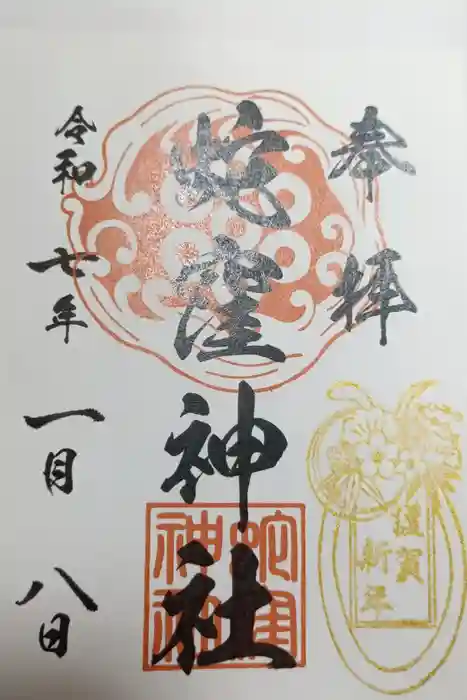 奉拝
蛇窪神社
蛇窪
神社
謹賀
新年
令和七年一月八日